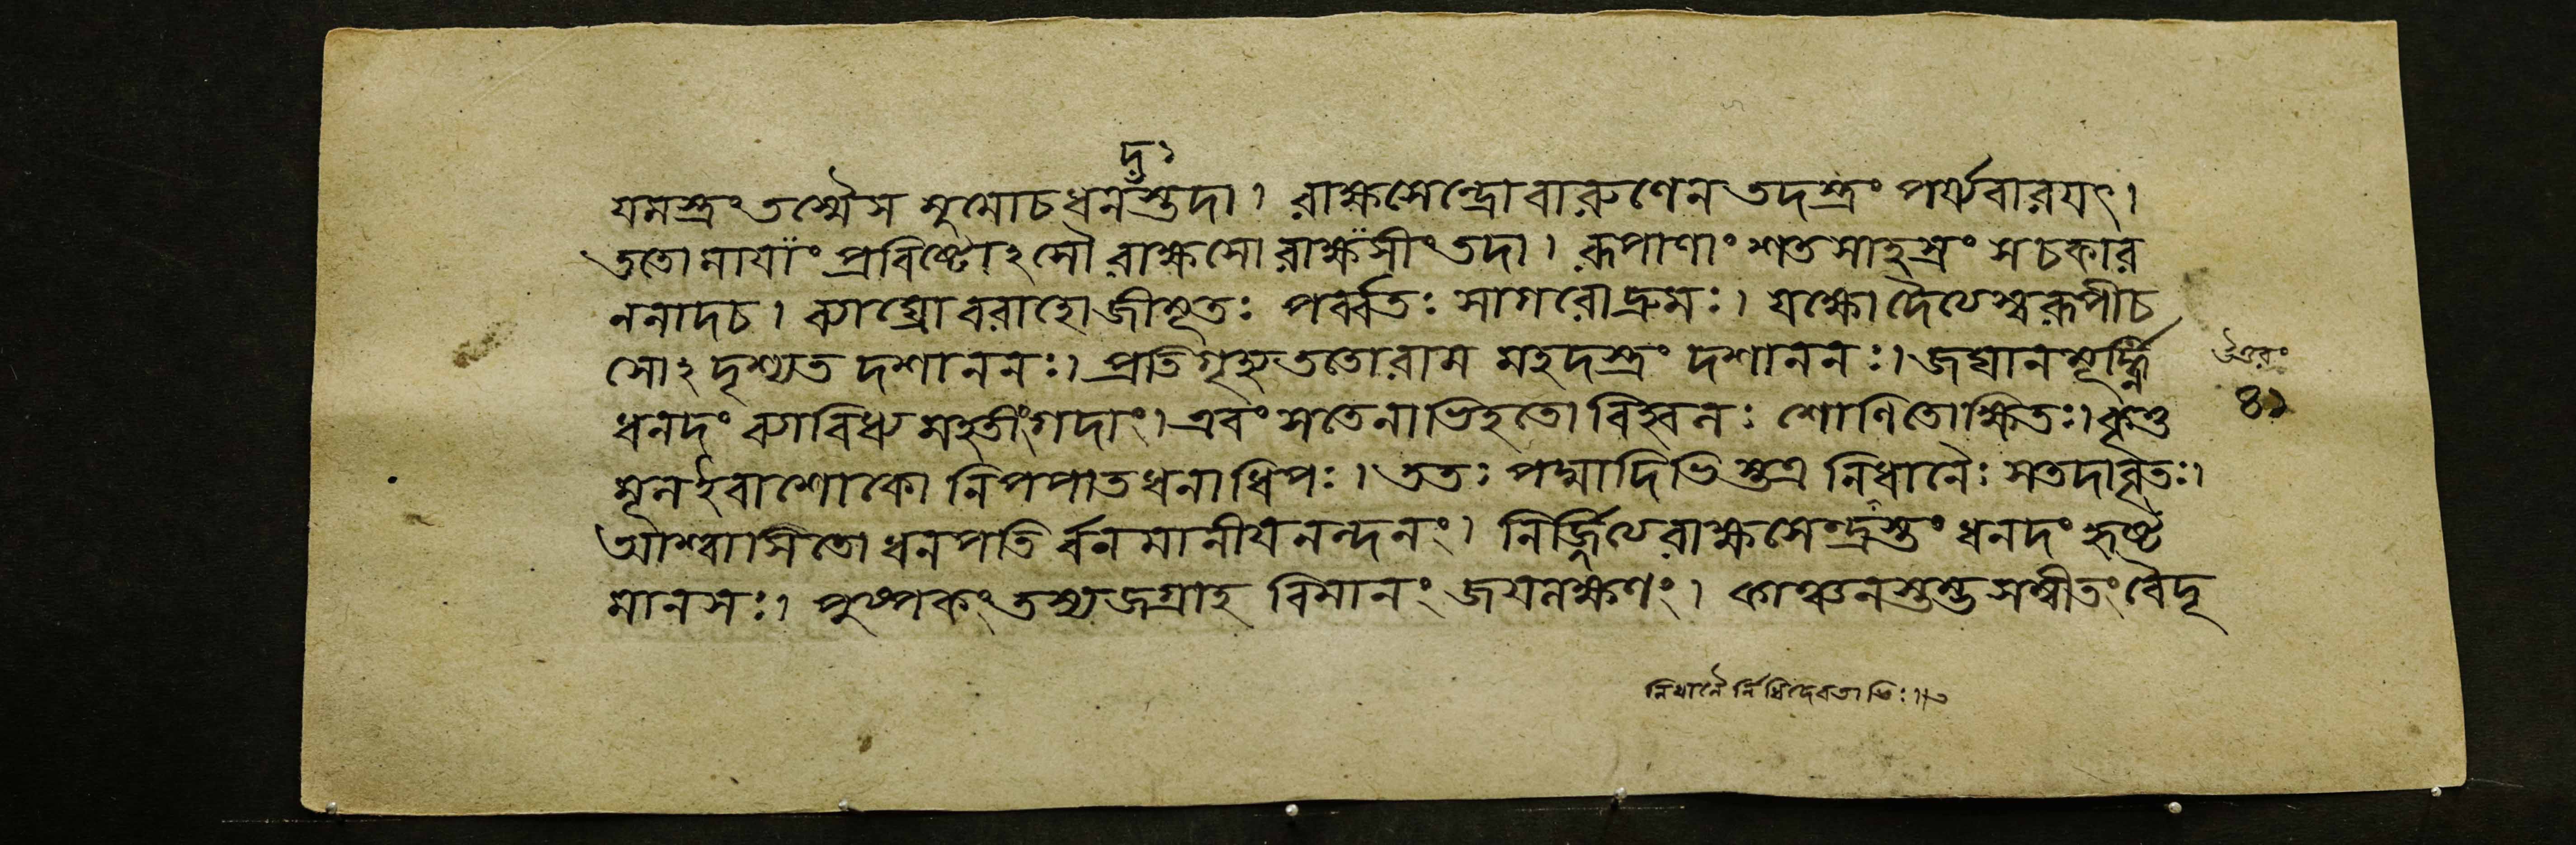 দঃ
যমস্ত্রং তস্মৈ স মুমোচ ধনস্তদা। রাক্ষসেন্দ্রো বারুণেন তদস্ত্রং পর্য্যবারয়ৎ।
ততো মায়াং প্রবিষ্টোঽসৌ রাক্ষসো রাক্ষসীং তদা। রূপাণাং শতসাহস্রং স চকার
ননাদ চ। ব্যাঘ্রো বরাহো জীমূতঃ পর্ব্বতঃ সাগরো দ্রুমঃ। যক্ষো দৈত্যস্বরূপী চ
সোঽদৃশ্যত দশাননঃ। প্রতিগৃহ্য ততো রাম মহদস্ত্রং দশাননঃ। জঘান মূর্দ্ধ্নি
ধনদং ব্যাবিধ্য মহতীং গদাং। এবং স তেনাভিহতো বিহ্বলঃ শোণিতোক্ষিতঃ। কৃত্ত
মূল ইবাশোকো নিপপাত ধনাধিপঃ। ততঃ পদ্মাদিভিস্তত্র নিধানৈঃ স তদাবৃতঃ।
আশ্বাসিতো ধনপতির্বনমানীয় নন্দনং। নির্জ্জিত্য রাক্ষসেন্দ্রস্তং ধনদং হৃষ্ট
মানসঃ। পুষ্পকং তস্য জগ্রাহ বিমানং জয়লক্ষণং। কাঞ্চনস্তম্ভসম্বীতং বৈদূ
উত্তরং
৪১
নিধানৈর্নিধিদেবতাভিঃ॥